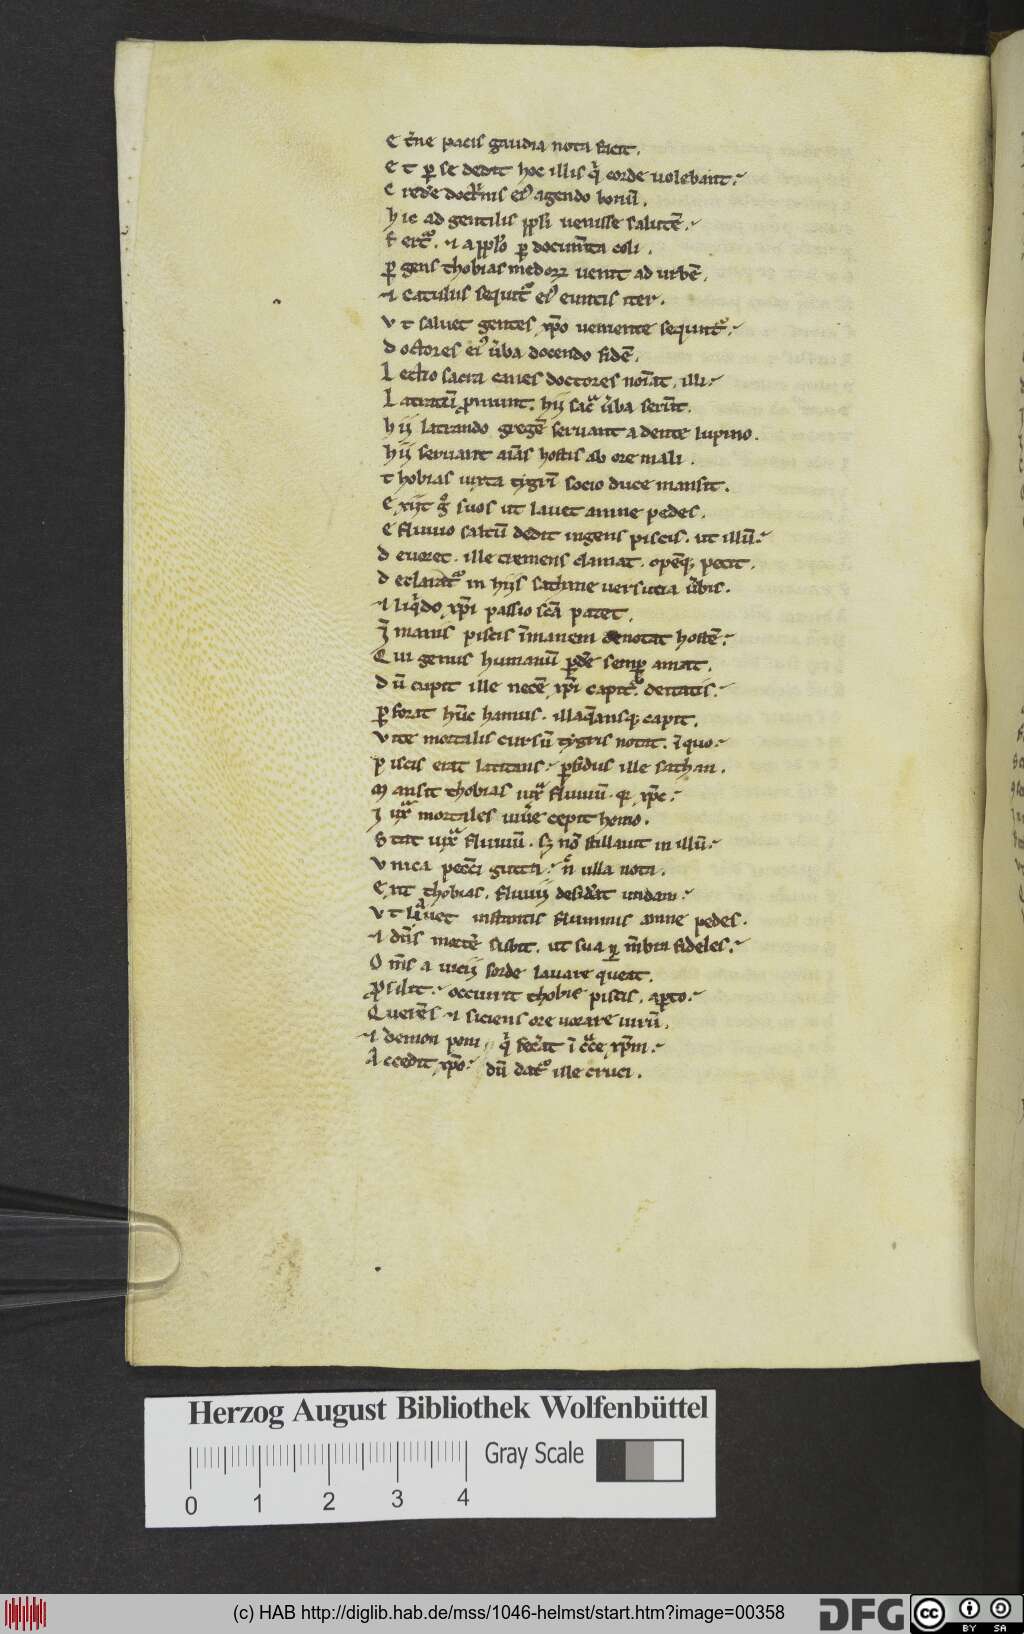 E t̃ne pacis gaudia nota facit.
E t ꝑ se dedit hoc illis q̾ corde uolebant:
C rede᷒ doct̾nis ei᷒ agendo bonũ.
h ic ad gentilis ppl̾i uenisse salutẽ.
⁊ catulus sequit᷑ ei᷒ euntis iter.
V t saluet gentes xp̃o ueniente sequunt᷑:
D octores ei᷒ ũba docendo fidẽ.
L ectio sacra canes doctores noĩat, illi:
h ij latrando gregẽ seruant a dente lupino.
h ij seruant aĩas hostis ab ore mali.
T hobias iuxta tygrĩ socio duce mansit.
E xijt g̊ suos ut lauet amne pedes.
E fluuio saltũ dedit ingens piscis. ut illũ:
D euoret. ille tremens clamat. opẽq; petit.
D eclarat᷑ in hijs sathane uersutia ũbis.
⁊ liq̾do xp̃i passio sc̃a patet.
I manis piscis ĩmanem denotat hostẽ:
Q ui genus humanũ ꝑde᷒ semꝑ amat.
D ũ cupit ille necẽ xp̃i capit᷑. deitatis:
ꝑ forat hũc hamus. illaq̃ansq; capit.
V ite mortalis cursũ tygris notat. ĩ quo:
P iscis erat latitans: ꝑfidus ille sathan.
M ansit thobias iuxͣ fluuiũ. qr xp̃c:
I uxͣ mortales uiũe cepit homo.
S tat iuxͣ fluuiũ. sꝫ nõ stillauit in illũ:
V nica pecc̃i gutta: ñ ulla nota.
E xit thobias. fluuij desid̾at undam:
V t lauet instantis fluminis amne pedes.
⁊ dñs mortẽ subit. ut sua ꝙ m̃bra fideles:
O m̃s a uicij sorde lauare queat.
P rosilit: occurrit thobie piscis. aperto:
Q uerẽs ⁊ siciens ore uorare uirũ.
⁊ demon peni q̾ fec̾at ĩ c̾ce xp̃m:
A ccedit xp̃o: dũ dat᷑ ille cruci.
Herzog August Bibliothek Wolfenbüttel
Gray Scale
0 1 2 3 4
(c) HAB http://diglib.hab.de/mss/1046-helmst/start.htm?image=00358
DFG
cc BY SA